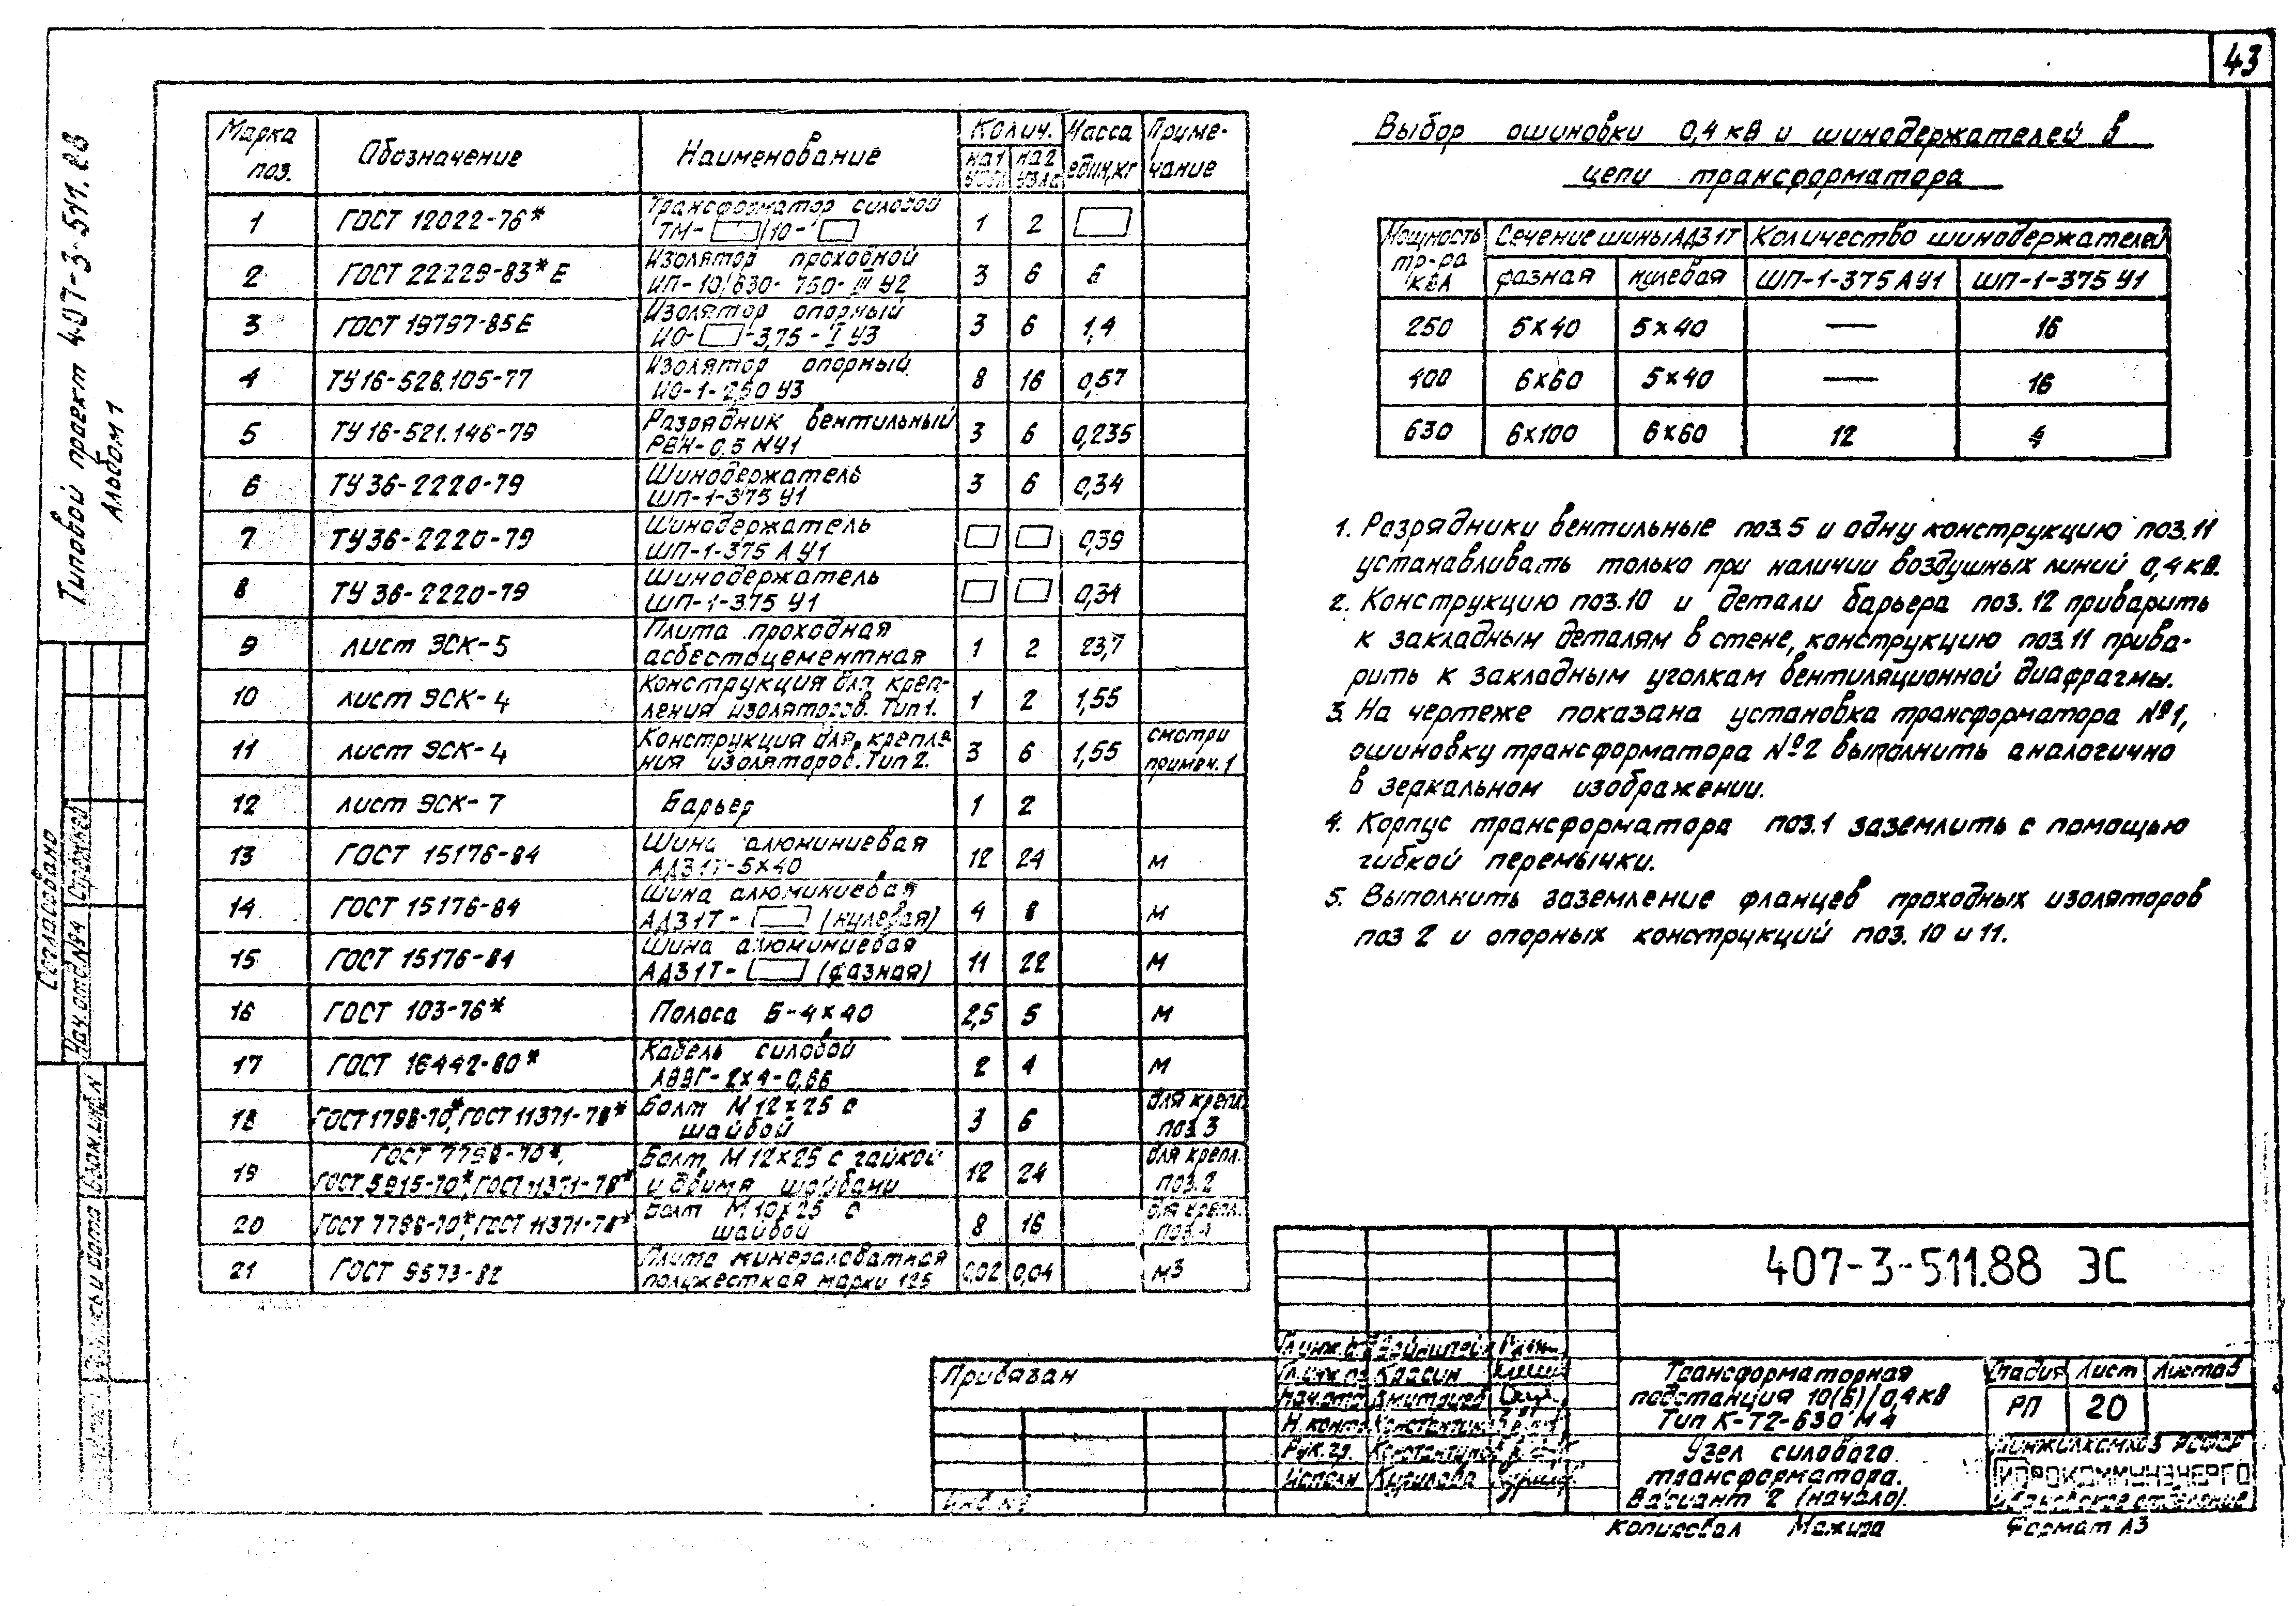 43
Типовой проект 407-3-511.88
Альбом 1
Согласовано
Марка поз. Обозначение Наименование Колич. на 1 узел на 2 узла Масса един, кг Примечание
1 ГОСТ 12022-76* Трансформатор силовой ТМ-▭/10-▭ 1 2 ▭
2 ГОСТ 22229-83*Е Изолятор проходной ИП-10/630-750-III У2 3 6 6
3 ГОСТ 19797-85Е Изолятор опорный ИО-▭-3,75-I У3 3 6 1,4
4 ТУ 16-528.105-77 Изолятор опорный ИО-1-250 У3 8 16 0,57
5 ТУ 16-521.146-79 Разрядник вентильный РВН-0,5 МУ1 3 6 0,235
6 ТУ 36-2220-79 Шинодержатель ШП-1-375 У1 3 6 0,34
7 ТУ 36-2220-79 Шинодержатель ШП-1-375 А У1 ▭ ▭ 0,39
8 ТУ 36-2220-79 Шинодержатель ШП-1-375 У1 ▭ ▭ 0,34
9 лист ЭСК-5 Плита проходная асбестоцементная 1 2 23,7
10 лист ЭСК-4 Конструкция для крепления изоляторов. Тип 1. 1 2 1,55
11 лист ЭСК-4 Конструкция для крепления изоляторов. Тип 2. 3 6 1,55 смотри примеч. 1
12 лист ЭСК-7 Барьер 1 2
13 ГОСТ 15176-84 Шина алюминиевая АД31Т-5х40 12 24 м
14 ГОСТ 15176-84 Шина алюминиевая АД31Т-▭ (нулевая) 4 8 м
15 ГОСТ 15176-84 Шина алюминиевая АД31Т-▭ (фазная) 11 22 м
16 ГОСТ 103-76* Полоса Б-4х40 2,5 5 м
17 ГОСТ 16442-80* Кабель силовой АВВГ-2х4-0,66 2 4 м
18 ГОСТ 1798-70*, ГОСТ 11371-78* Болт М12х25 с шайбой 3 6 для крепл. поз. 3
19 ГОСТ 7798-70*, ГОСТ 5915-70*, ГОСТ 11371-78* Болт М12х25 с гайкой и двумя шайбами 12 24 для крепл. поз. 2
20 ГОСТ 7798-70*, ГОСТ 11371-78* Болт М10х25 с шайбой 8 16 для крепл. поз. 4
21 ГОСТ 9573-82 Плита минераловатная полужесткая марки 125 0,02 0,04 м3
Выбор ошиновки 0,4 кв и шинодержателей в
цепи трансформатора
Мощность тр-ра кВА Сечение шины АД31Т Количество шинодержателей
фазная нулевая ШП-1-375 А У1 ШП-1-375 У1
250 5х40 5х40 — 16
400 6х60 5х40 — 16
630 6х100 6х60 12 4
1. Разрядники вентильные поз. 5 и одну конструкцию поз. 11
устанавливать только при наличии воздушных линий 0,4 кв.
2. Конструкцию поз. 10 и детали барьера поз. 12 приварить
к закладным деталям в стене, конструкцию поз. 11 прива-
рить к закладным уголкам вентиляционной диафрагмы.
3. На чертеже показана установка трансформатора №1,
ошиновку трансформатора №2 выполнить аналогично
в зеркальном изображении.
4. Корпус трансформатора поз. 1 заземлить с помощью
гибкой перемычки.
5. Выполнить заземление фланцев проходных изоляторов
поз 2 и опорных конструкций поз. 10 и 11.
407-3-511.88 ЭС
Привязан
Инв. №
Красин
Н. контр.
Рук. гр.
Исполн
Трансформаторная
подстанция 10(6)/0,4 кв
Тип К-Т2-630 М4
Стадия Лист Листов
РП 20
Узел силового
трансформатора.
Вариант 2 (начало).
Копировал
Формат А3